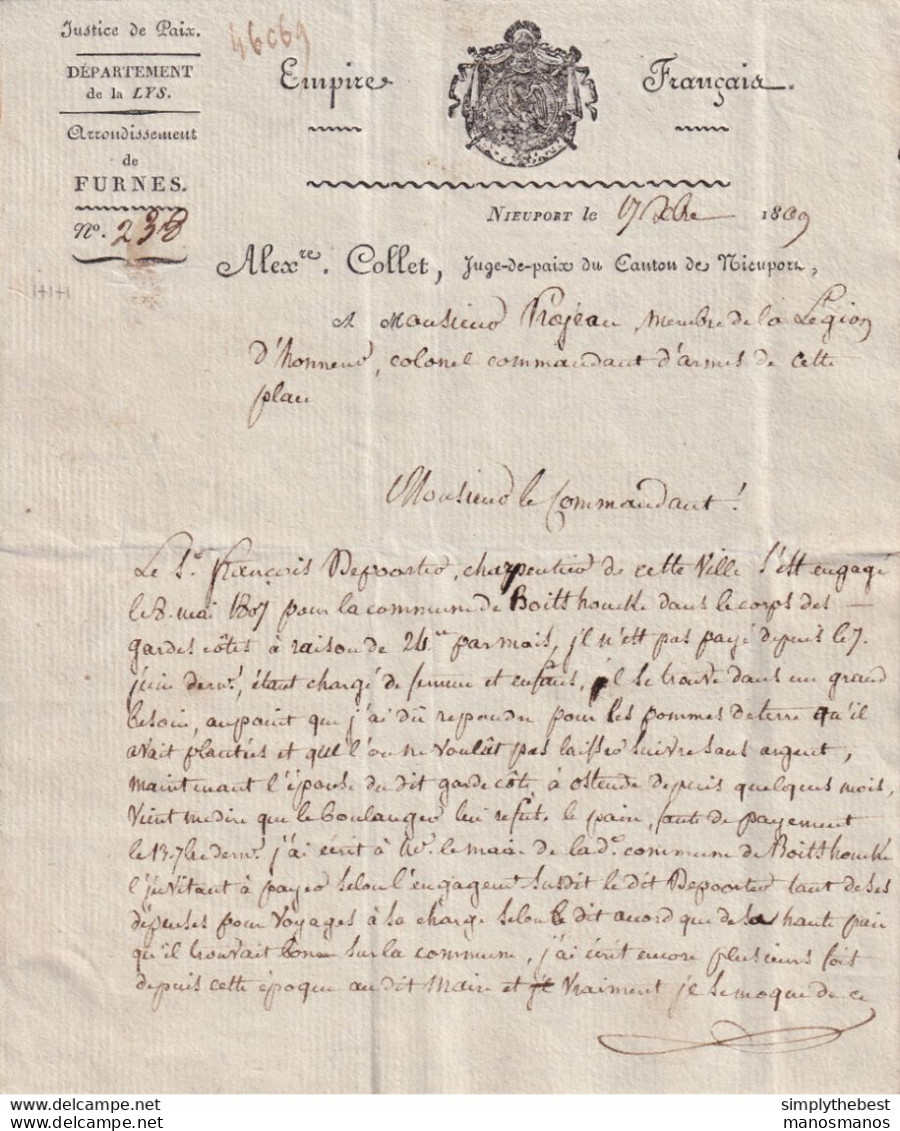 Justice de Paix.
46069
DÉPARTEMENT
de la LYS.
Empire Français.
Arrondissement
de
FURNES.
NIEUPORT le 17 Xbre 1809
N.º 238
Alex.re Collet, Juge-de-paix du Canton de Nieuport,
A Monsieur Projean, membre de la Légion
d'honneur, colonel commandant d'armes de cette
place
Monsieur le Commandant!
Le Sr. François Depoorter, charpentier de cette Ville s'est engagé
le 8. mai 1807 pour la commune de Boitshoucke dans le corps des
gardes côtes à raison de 24 par mois, il n'est pas payé depuis le 7.
juin dernr., étant chargé de femme et enfans, il se trouve dans un grand
besoin, au point que j'ai dû repondre pour les pommes de terre qu'il
avait plantées et que l'on ne voulût pas laisser suivre sans argent,
maintenant l'épouse du dit garde côte, à ostende depuis quelques mois,
vient me dire que le boulanger lui refuse le pain, faute de payement
le 13. 7bre dernr. j'ai écrit à Mr. le maire de lade. commune de Boitshoucke
l'invitant à payer selon l'engagemt. susdit le dit Depoorter tant de ses
dépenses pour voyages à sa charge selon le dit accord que de sa haute paie
qu'il trouvait bonne sur la commune, j'ai écrit encore plusieurs fois
depuis cette époque au dit Maire et vraiment je se moque de ce
simplythebest
manosmanos